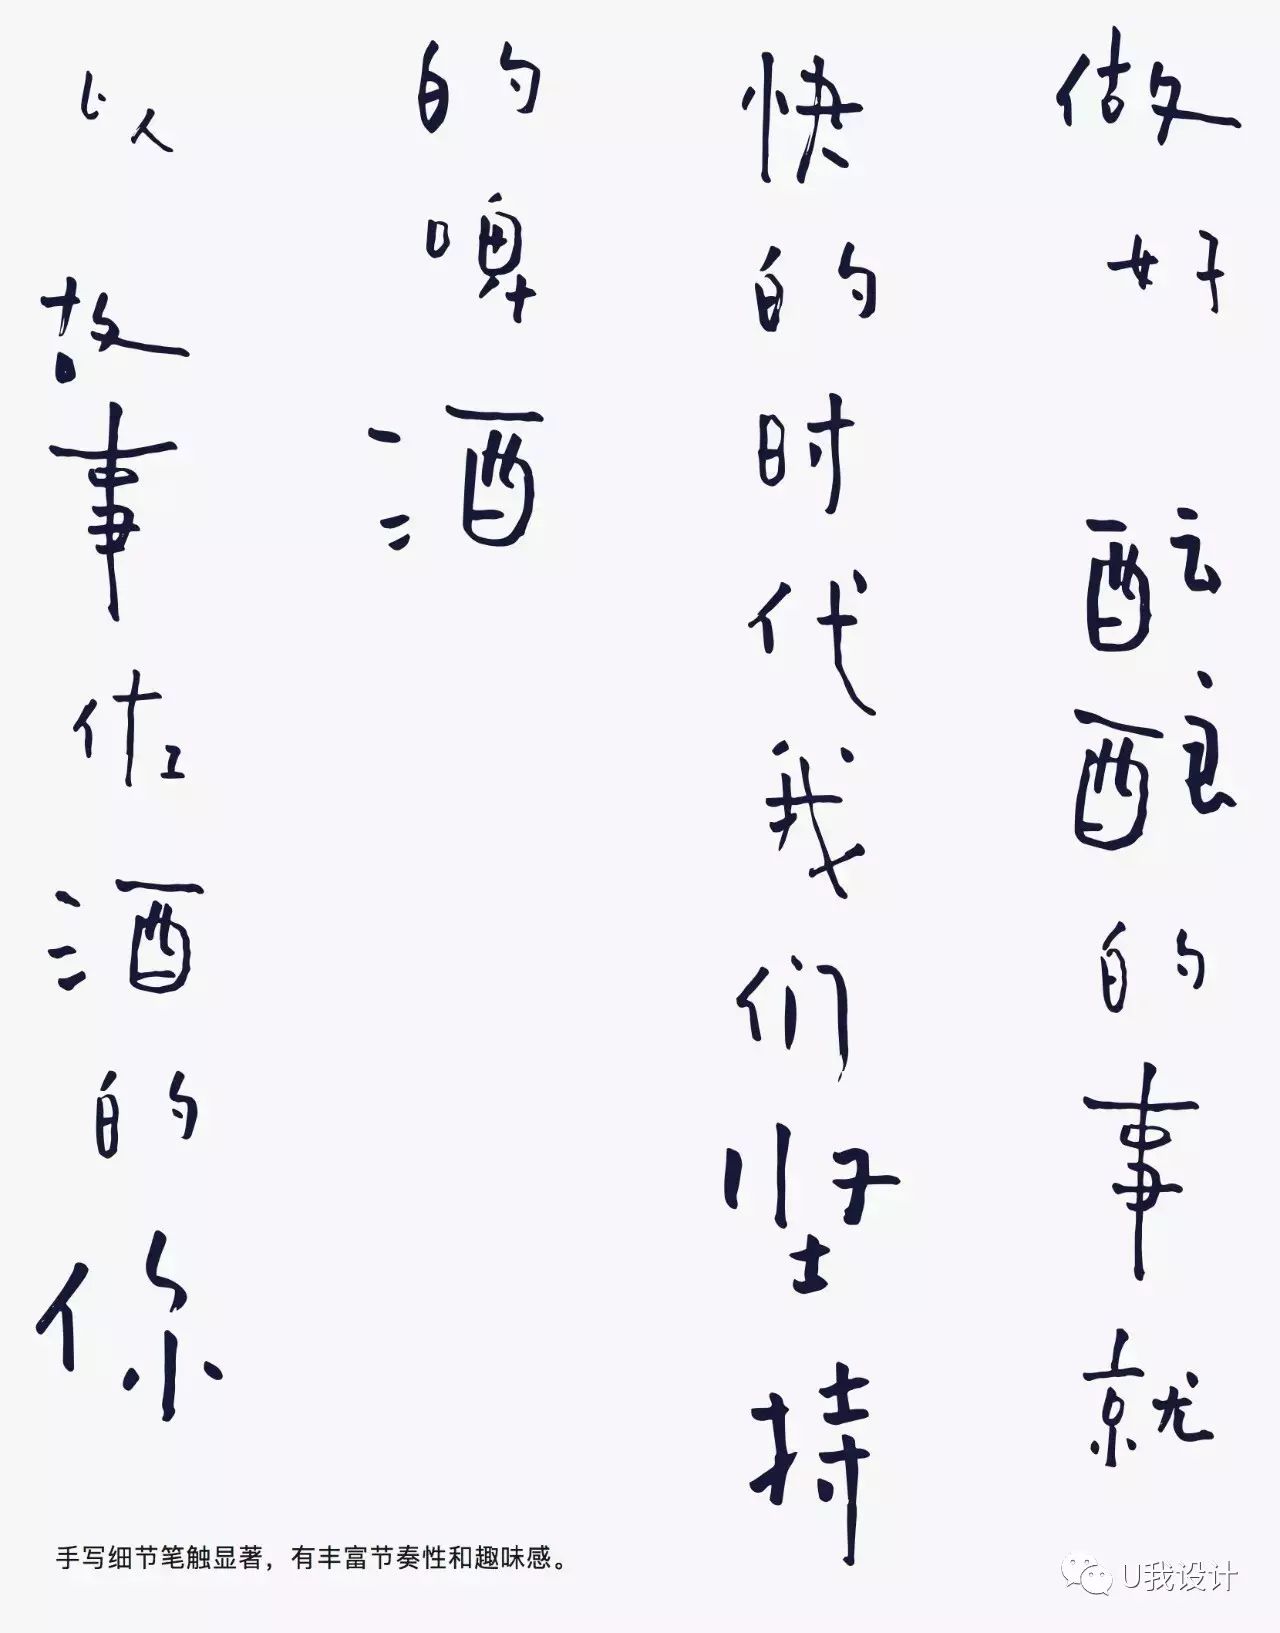 做好酝酿的事就
快的时代我们坚持
的啤酒
以故事佐酒的你
手写细节笔触显著，有丰富节奏性和趣味感。
U我设计